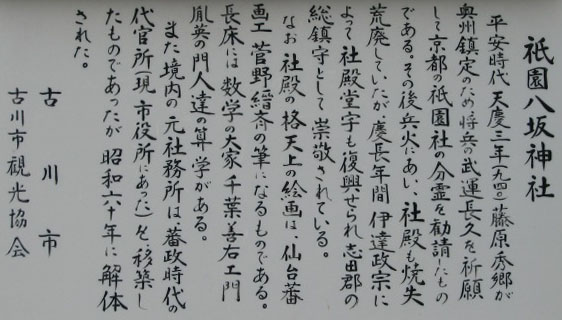 祇園八坂神社
平安時代 天慶三年(九四〇)藤原秀郷が
奥州鎮定のため将兵の武運長久を祈願
して京都の祇園社の分霊を勧請したもの
である。その後兵火にあい、社殿も焼失
荒廃していたが慶長年間 伊達政宗に
よって社殿堂宇も復興せられ志田郡の
総鎮守として崇敬されている。
なお 社殿の格天上の絵画は、仙台蕃
画工 菅野縉斉の筆になるものである。
長床には 数学の大家 千葉善右エ門
胤英の門人達の算学がある。
また境内の元社務所は蕃政時代の
代官所(現 市役所にあた)を移築し
たものであったが 昭和六十年に解体
された。
古川市
古川市観光協会